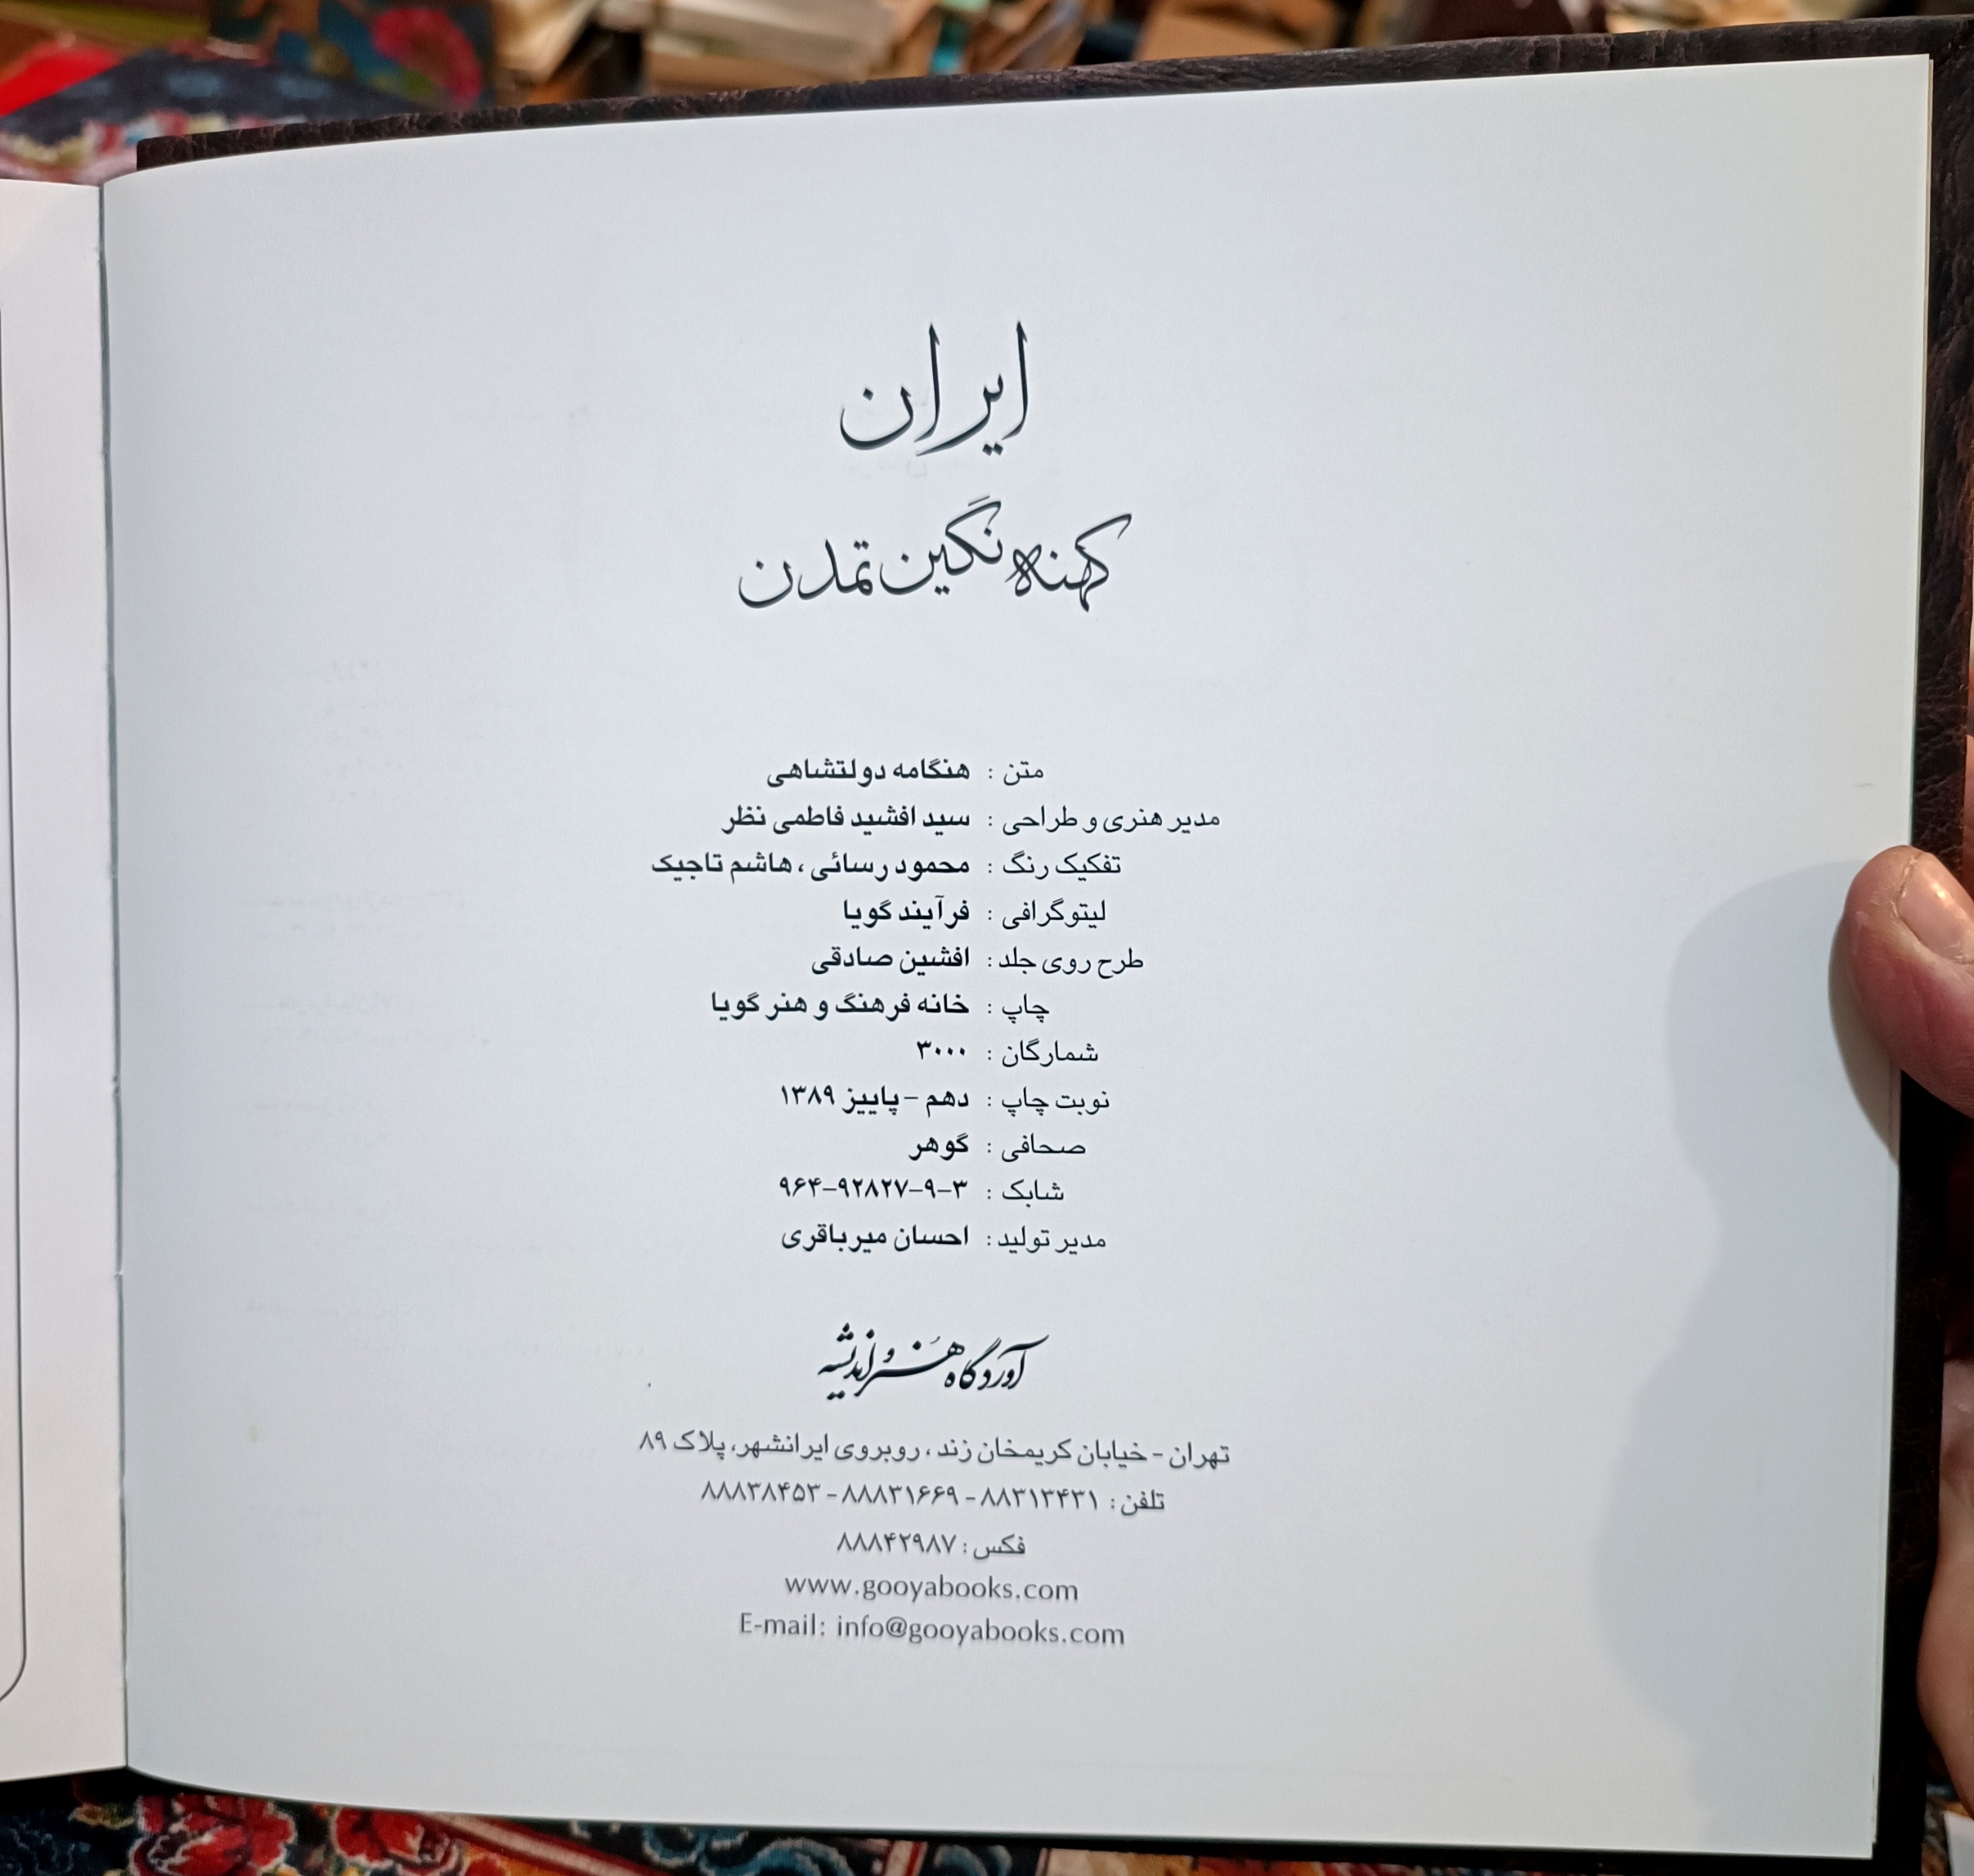 ایران
کهنه نگین تمدن
متن : هنگامه دولتشاهی
مدیر هنری و طراحی : سید افشید فاطمی نظر
تفکیک رنگ : محمود رسائی، هاشم تاجیک
لیتوگرافی : فرآیند گویا
طرح روی جلد : افشین صادقی
چاپ : خانه فرهنگ و هنر گویا
شمارگان : ۳۰۰۰
نوبت چاپ : دهم – پاییز ۱۳۸۹
صحافی : گوهر
شابک : ۹۶۴–۹۲۸۲۷–۹–۳
مدیر تولید : احسان میرباقری
آوردگاه هنر و اندیشه
تهران - خیابان کریمخان زند، روبروی ایرانشهر، پلاک ۸۹
تلفن : ۸۸۳۱۳۴۳۱ - ۸۸۸۳۱۶۶۹ - ۸۸۸۳۸۴۵۳
فکس : ۸۸۸۴۲۹۸۷
www.gooyabooks.com
E-mail: info@gooyabooks.com